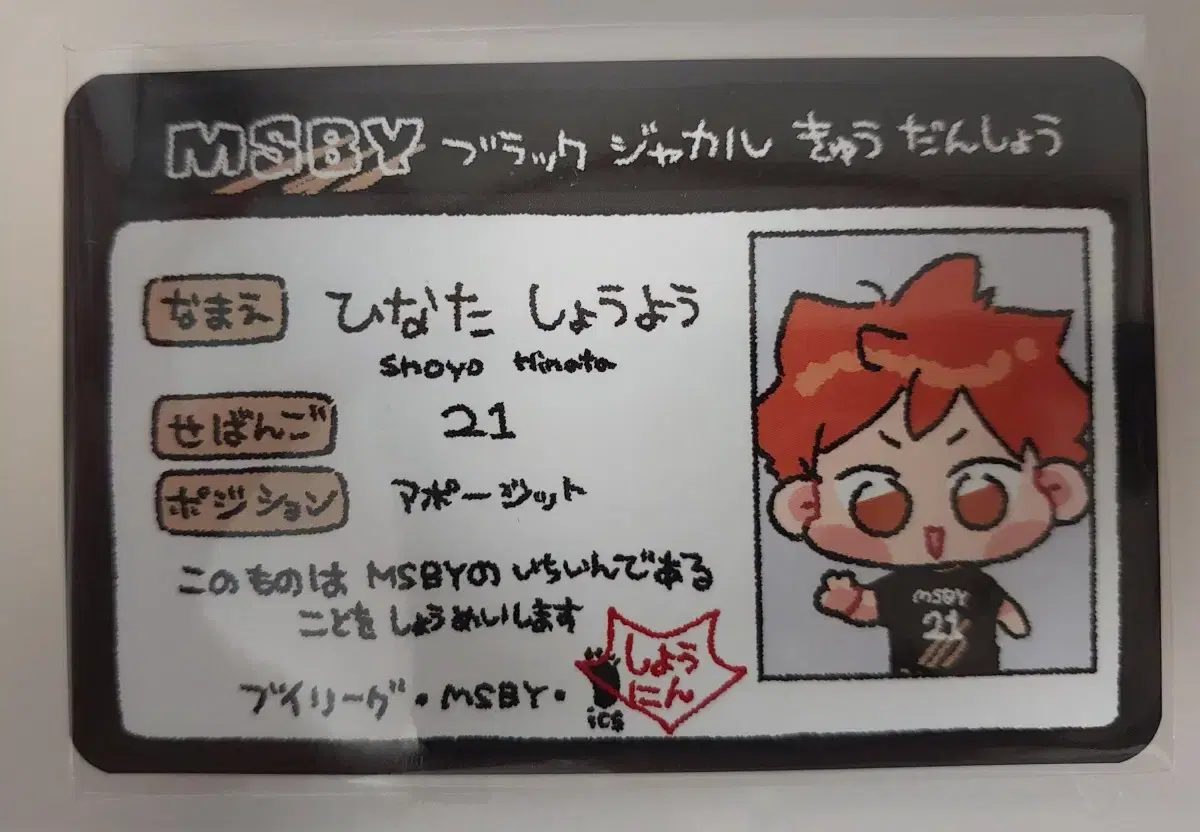 MSBY ブラック ジャカル きゅう だんしょう
なまえ ひなた しょうよう
Shoyo Hinata
せばんご 21
ポジション アポージット
このものは MSBYの いちいんである
ことを しょうめいします
ブイリーグ・MSBY・
ics
しょう
にん
MSBY
21